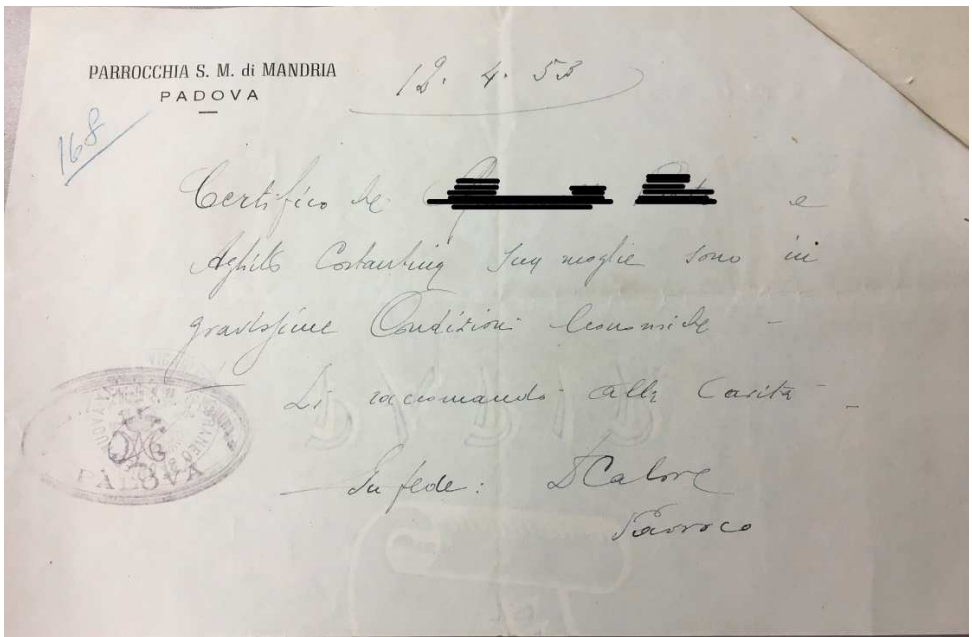 PARROCCHIA S. M. di MANDRIA
PADOVA
12. 4. 53
168
Certifico che e
Costantina sua moglie sono in
gravissime Condizioni Economiche -
Li raccomando alla Carità -
In fede: D Calore
Parroco
PADOVA